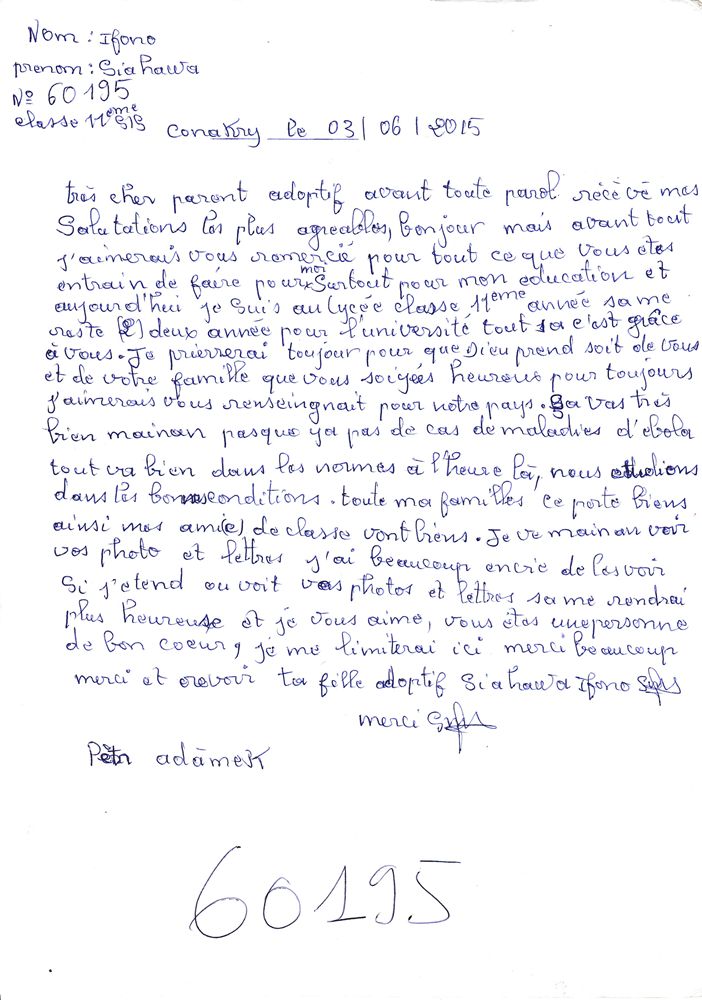 Nom : Ifono
prenom : Siahawa
Nº 60195
classe 11eme
Conakry le 03 / 06 / 2015
très cher parent adoptif avant toute parol récévé mes
Salutations les plus agreables, bonjour mais avant tout
j'aimerais vous remercié pour tout ce que vous êtes
entrain de faire pour moi surtout pour mon education et
aujourd'hui je suis au lycée classe 11eme année sa me
reste (2) deux année pour l'université tout sa c'est grâce
à vous. Je prierrerai toujour pour que Dieu prend soit de vous
et de votre famille que vous soiyées heureus pour toujours
j'aimerais vous renseingnait pour notre pays. sa vas très
bien mainan pasque ya pas de cas de maladies d'ebola
tout va bien dans les normes à l'heure là, nous etudions
dans les bonnes conditions. toute ma familles ce porte biens
ainsi mes ami(e)s de classe vont biens. Je ve mainan voir
vos photo et lettres j'ai beaucoup envie de les voir
Si j'etend ou voit vos photos et lettres sa me rendrai
plus heureuse et je vous aime, vous êtes une personne
de bon coeur, je me limiterai ici merci beaucoup
merci et orevoir ta fille adoptif Siahawa Ifono
merci
Pètr adámek
60195